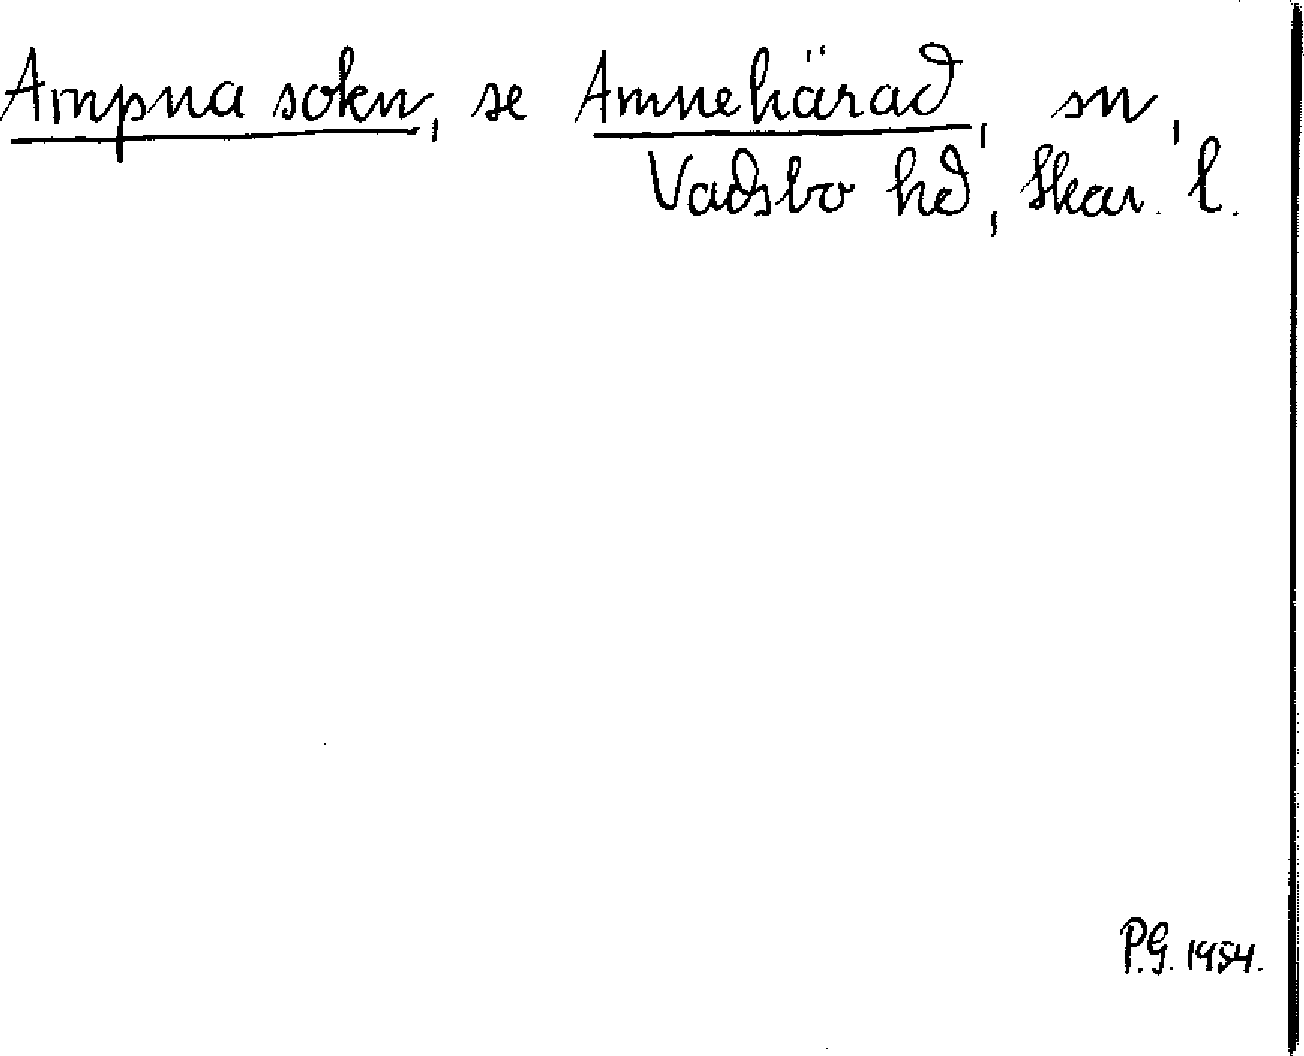 Ampna sokn, se Amnehärad, sn,
Vadsbo hd, Skar. l.
P.G. 1954.